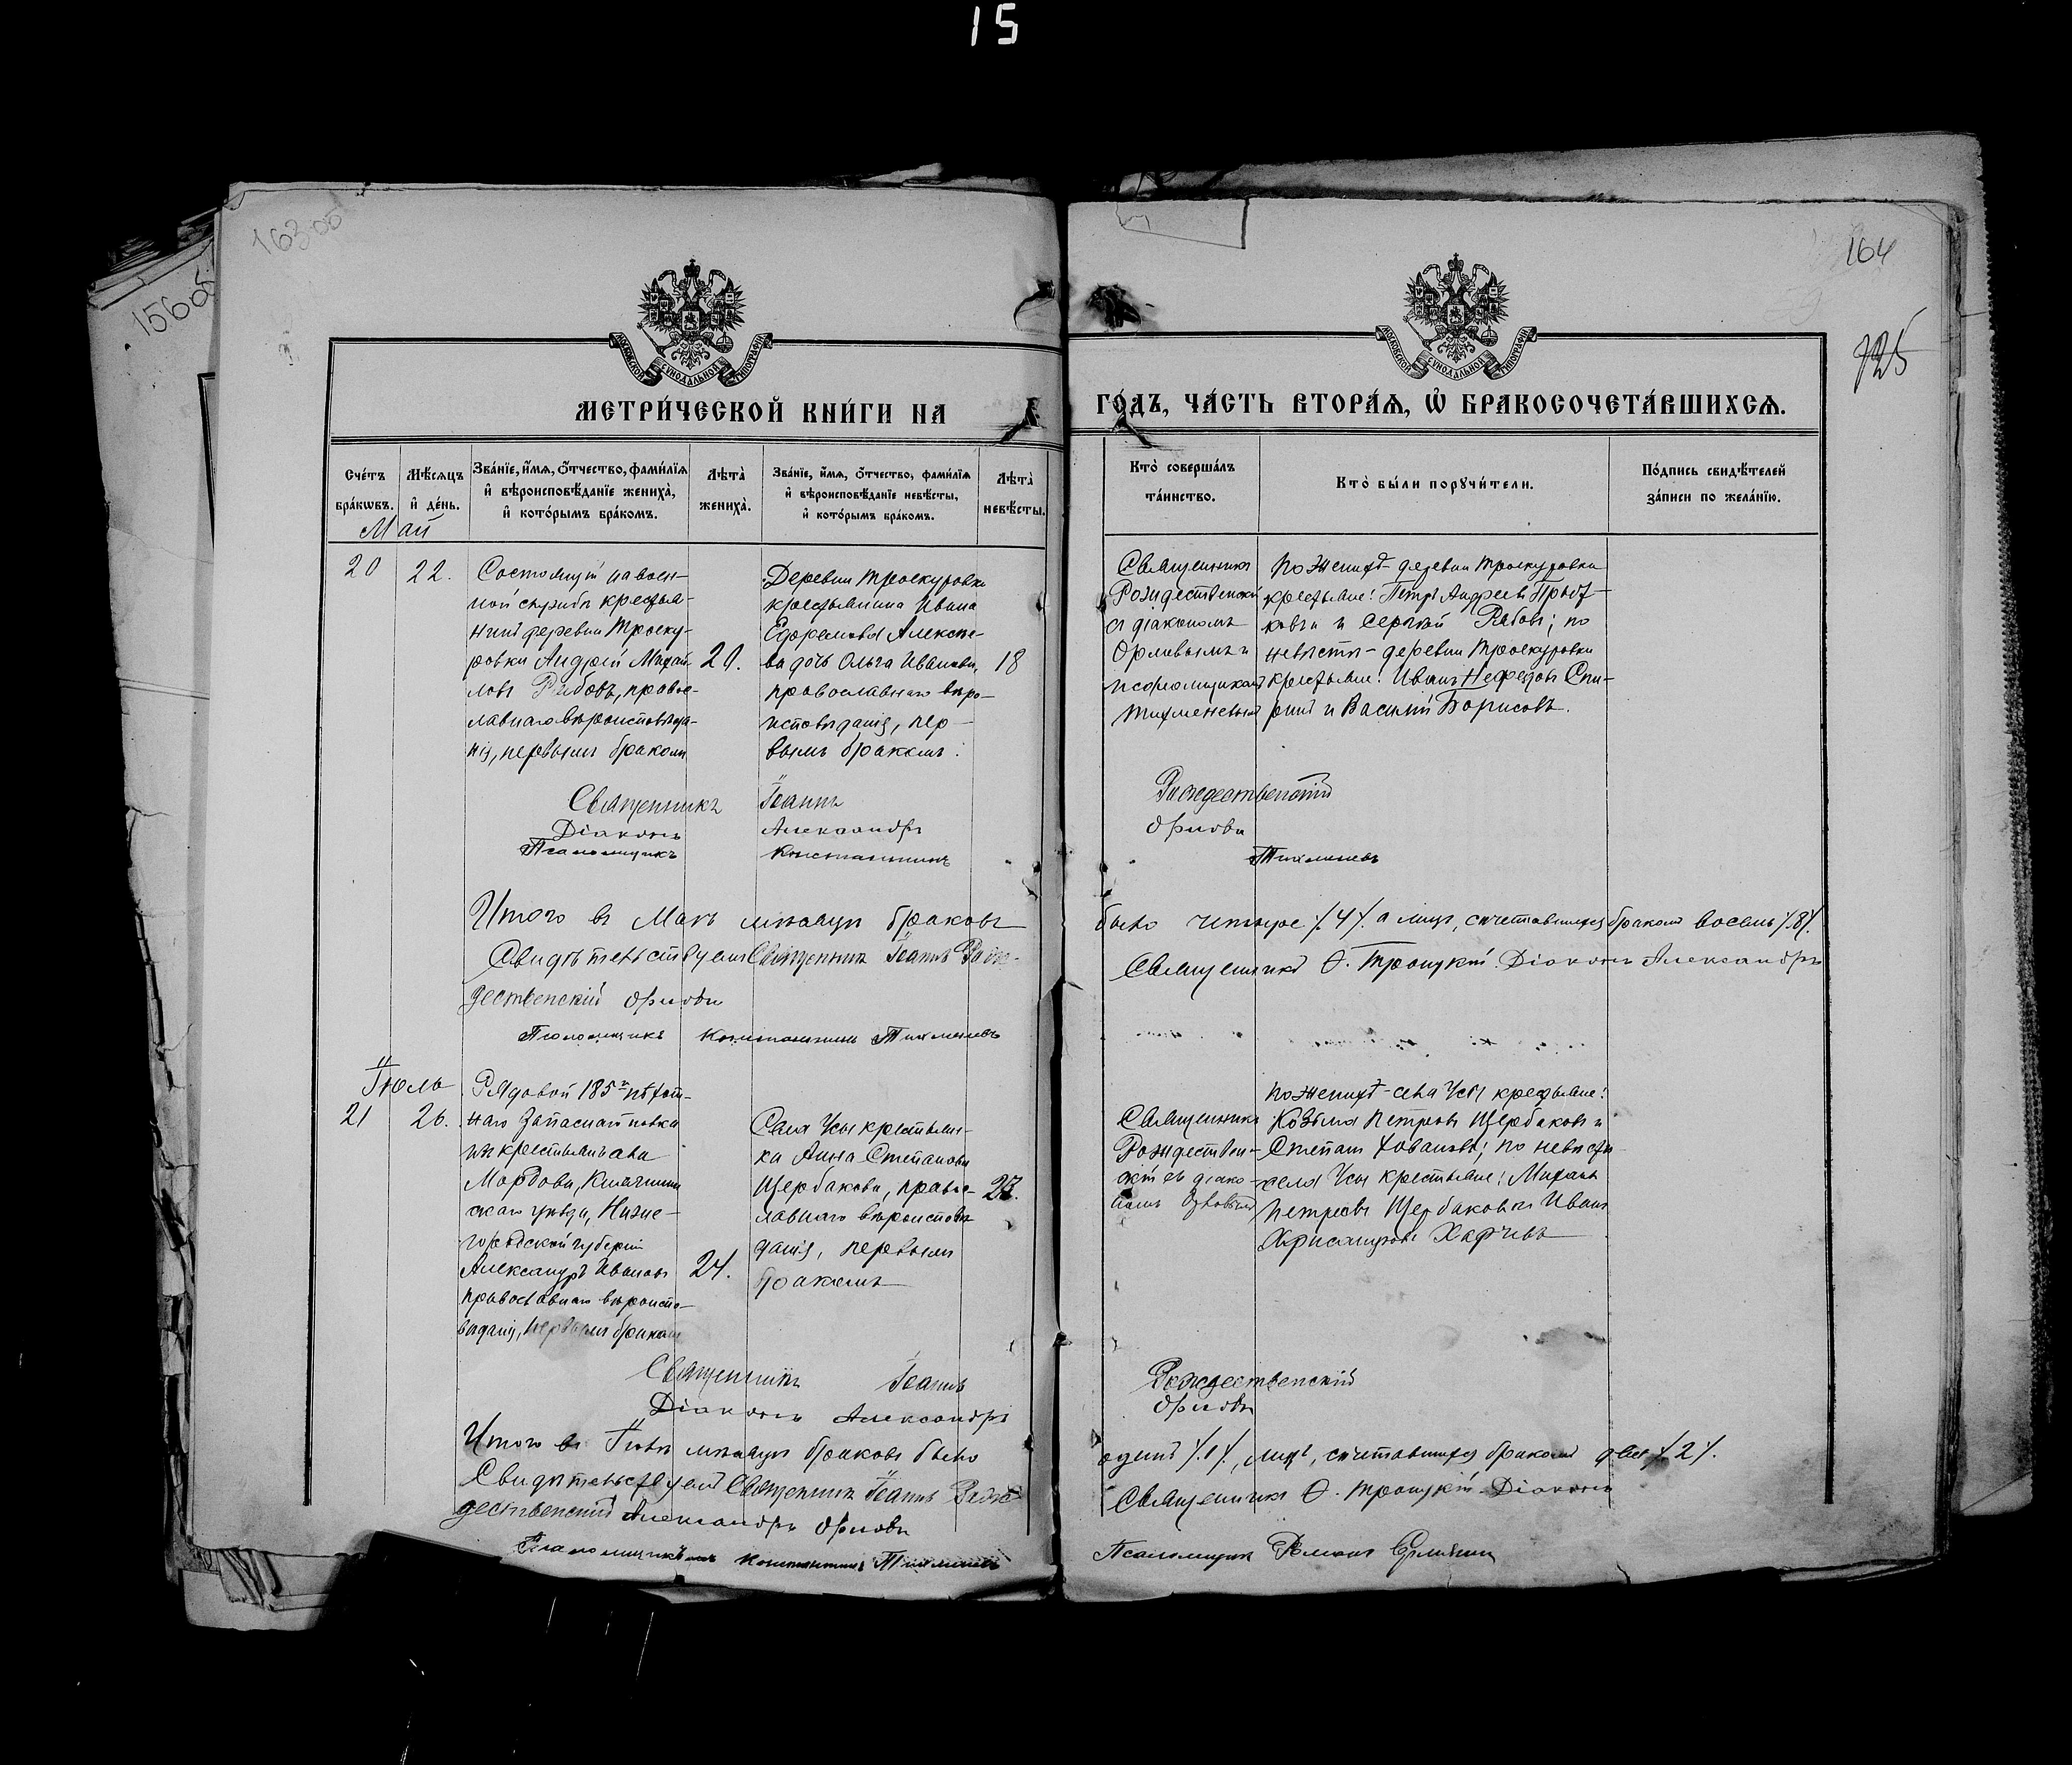 15
163 об
156 об
164
МЕТРИ́ЧЕСКОЙ КНИ́ГИ НА
ГО́ДЪ, ЧА́СТЬ ВТОРА́Ѧ, Ѽ БРАКОСОЧЕТА́ВШИХСѦ.
Сче́тъ бра́кѡвъ.
Мѣ́сѧцъ и҆ де́нь.
Зва́нїе, и҆́мѧ, ѻ҆́тчество, фами́лїѧ
и҆ вѣроисповѣ́данїе жениха̀,
и҆ кото́рымъ бра́комъ.
Лѣта̀ жениха̀.
Зва́нїе, и҆́мѧ, ѻ҆́тчество, фами́лїѧ
и҆ вѣроисповѣ́данїе невѣ́сты,
и҆ кото́рымъ бра́комъ.
Лѣта̀ невѣ́сты.
Кто̀ соверша́лъ
та́инство.
Кто̀ бы́ли порꙋчи́тели.
По́дпись свидѣ́телей
за́писи по жела́нїю.
Май
20
22.
Состоящій на воен-
ной службѣ крестья-
нинъ деревни Троеку-
ровки Андрей Михай-
ловъ Рябовъ, правос-
лавнаго вѣроисповѣда-
нія, первымъ бракомъ
Деревни Троекуровки
крестьянина Ивана
Ефремова Алексѣе-
ва дочь Ольга Иванова,
православнаго вѣро-
исповѣданія, пер-
вымъ бракомъ.
18
Священникъ
Рождественскій
съ діакономъ
Орловымъ и
псаломщикомъ
Тихменевымъ
По женихѣ деревни Троекуровки
крестьяне: Петръ Андреевъ
и Сергѣй Рябовъ; по
невѣстѣ - деревни Троекуровки
крестьяне: Иванъ Нефедовъ
и Василій Борисовъ.
Священникъ Іоаннъ Рождественскій
Діаконъ Александръ Орловъ
Псаломщикъ Константинъ Тихменевъ
Итого въ Маѣ мѣсяцѣ браковъ было четыре /.4/. а лицъ, сочетавшихся бракомъ восемь /.8/.
Свидѣтельствуемъ Священникъ Іоаннъ Рож- Священникъ Ѳ. Троицкій. Діаконъ Александръ
дественскій Орловъ
Псаломщикъ Константинъ Тихменевъ
Іюль
21
26.
Рядовой 185го пѣхот-
наго запаснаго полка
изъ крестьянъ
Княгинин-
скаго уѣзда, Ниже-
городской губерніи
Александръ Ивановъ
православнаго вѣроиспо-
вѣданія, первымъ бракомъ
24.
Села Усы крестьян-
ка Анна Степанова
Щербакова, правос-
лавнаго вѣроисповѣ-
данія, первымъ
бракомъ
23.
Священникъ
Рождествен-
скій съ діако-
номъ Орловымъ
По женихѣ - села Усы крестьяне:
Козьма Петровъ Щербаковъ и
Степанъ; по невѣстѣ
села Усы крестьяне: Михаилъ
Петровъ Щербаковъ и Иванъ
Хрисанфовъ
Священникъ Іоаннъ Рождественскій
Діаконъ Александръ Орловъ
Итого въ Іюлѣ мѣсяцѣ браковъ было одинъ /.1/., лицъ, сочетавшихся бракомъ двое /.2/.
Свидѣтельствуемъ Священникъ Іоаннъ Рож- Священникъ Ѳ. Троицкій. Діаконъ
дественскій Александръ Орловъ
Псаломщикъ Константинъ Тихменевъ Псаломщикъ Романъ